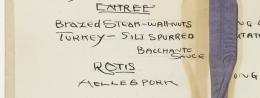 ENTREE
BRAZED STEAK-WALLNUTS
TURKEY - SILT SPURRED
BACCHANTE
SAUCE
ROTIS
HELLESPORK
ONG